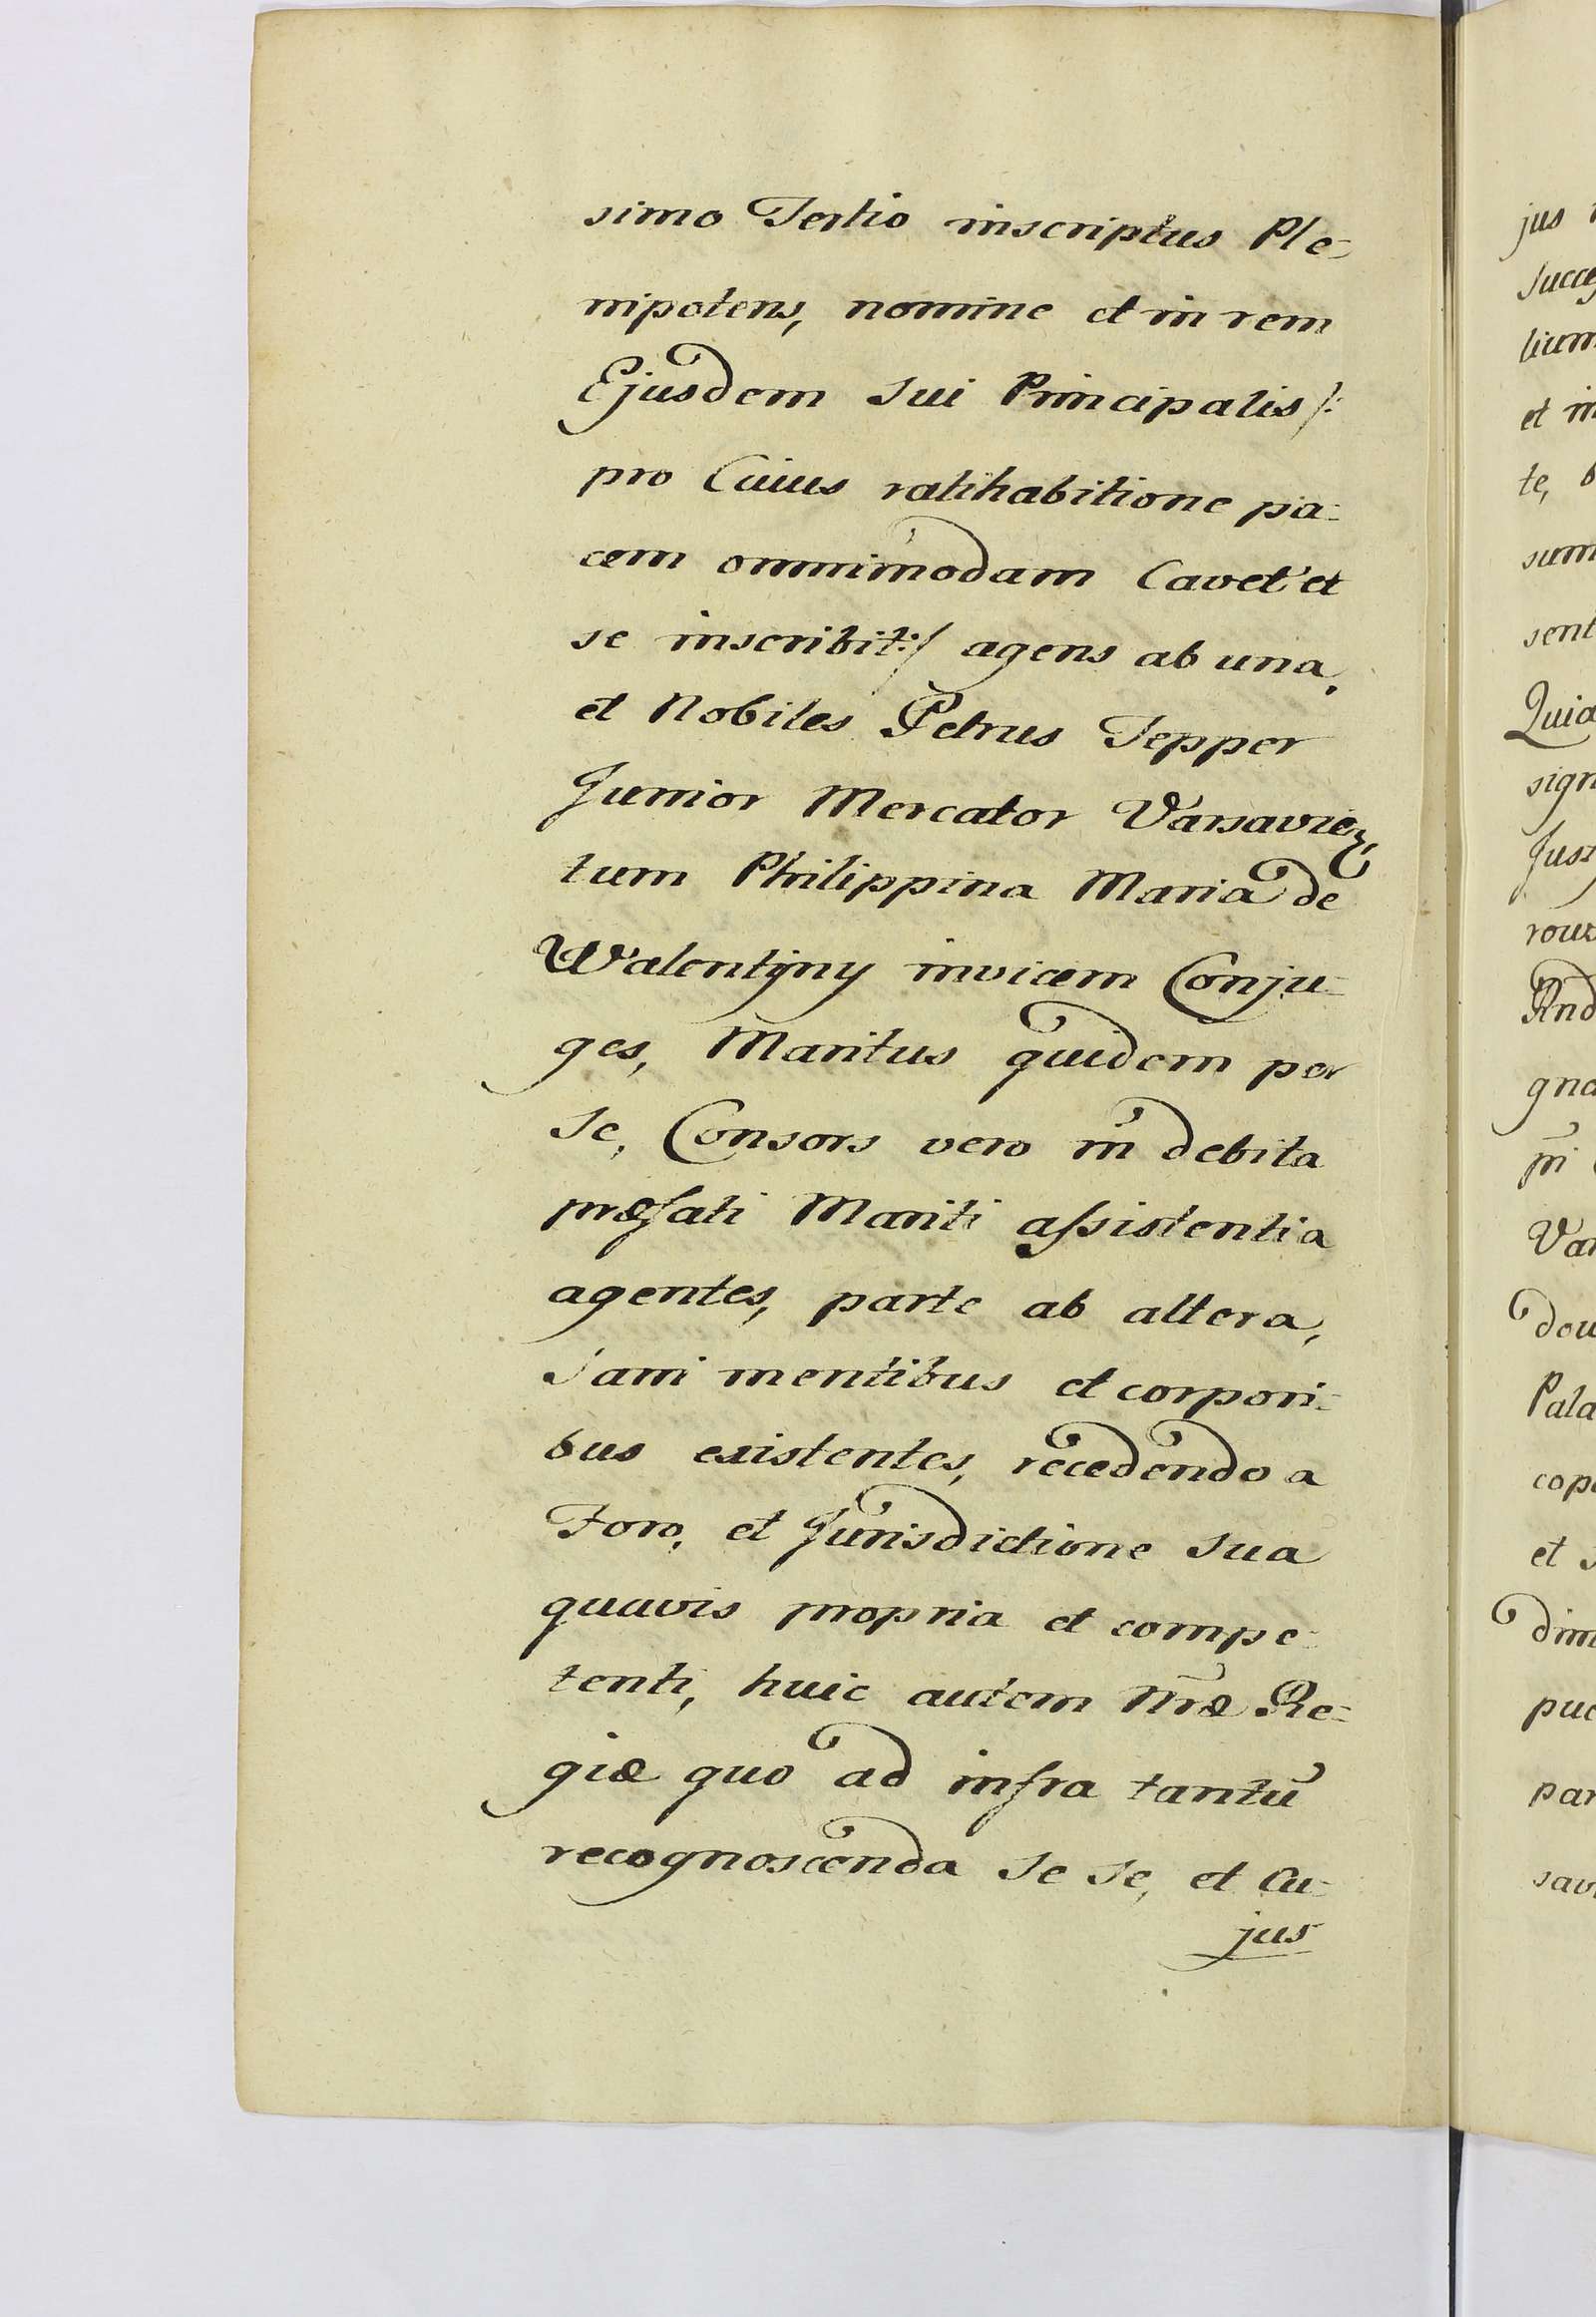 simo Tertio inscriptus Ple=
nipotens, nomine et in rem
Ejusdem Sui Principalis /:
pro Cuius ratihabitione pa=
cem omnimodam Cavet et
se inscribit :/ agens ab una,
et Nobiles Petrus Tepper
Junior Mercator Varsavien,
tum Philippina Maria de
Walentÿny invicem Conju=
ges, Maritus quidem per
Se, Consors vero in debita
præfati Mariti assistentia
agentes, parte ab altera,
Sani mentibus et corpori=
bus existentes, recedendo a
Foro, et Jurisdictione Sua
quavis propria et compe=
tenti, huic autem Nræ Re=
giæ quo ad infra tantũ
recognoscenda Se Se, et Cu=
jus
jus
et
te,
sum
sent
Quia
gna
Pala
et
par